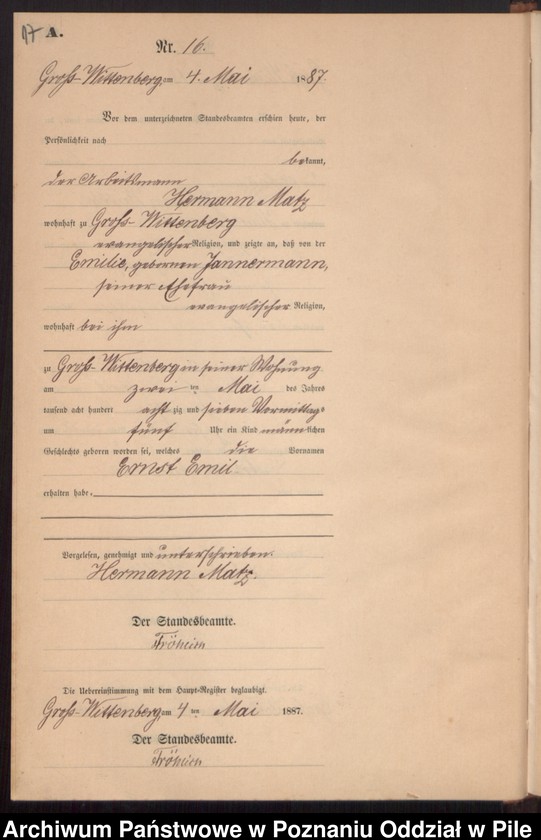 17 A.
Nr. 16.
Groß-Wittenberg am 4. Mai 1887.
Vor dem unterzeichneten Standesbeamten erschien heute, der
Persönlichkeit nach
bekannt,
der Arbeitsmann
Hermann Matz
wohnhaft zu Groß-Wittenberg
evangelischer Religion, und zeigte an, daß von der
Emilie, geborenen Jannermann,
seiner Ehefrau
evangelischer Religion,
wohnhaft bei ihm
zu Groß-Wittenberg in seiner Wohnung
am zwei ten Mai des Jahres
tausend acht hundert acht zig und sieben Vormittags
um fünf Uhr ein Kind männlichen
Geschlechts geboren worden sei, welches die Vornamen
Ernst Emil
erhalten habe.
Vorgelesen, genehmigt und unterschrieben.
Hermann Matz.
Der Standesbeamte.
Fröhlich
Die Uebereinstimmung mit dem Haupt-Register beglaubigt.
Groß-Wittenberg am 4 ten Mai 1887.
Der Standesbeamte.
Fröhlich
Archiwum Państwowe w Poznaniu Oddział w Pile